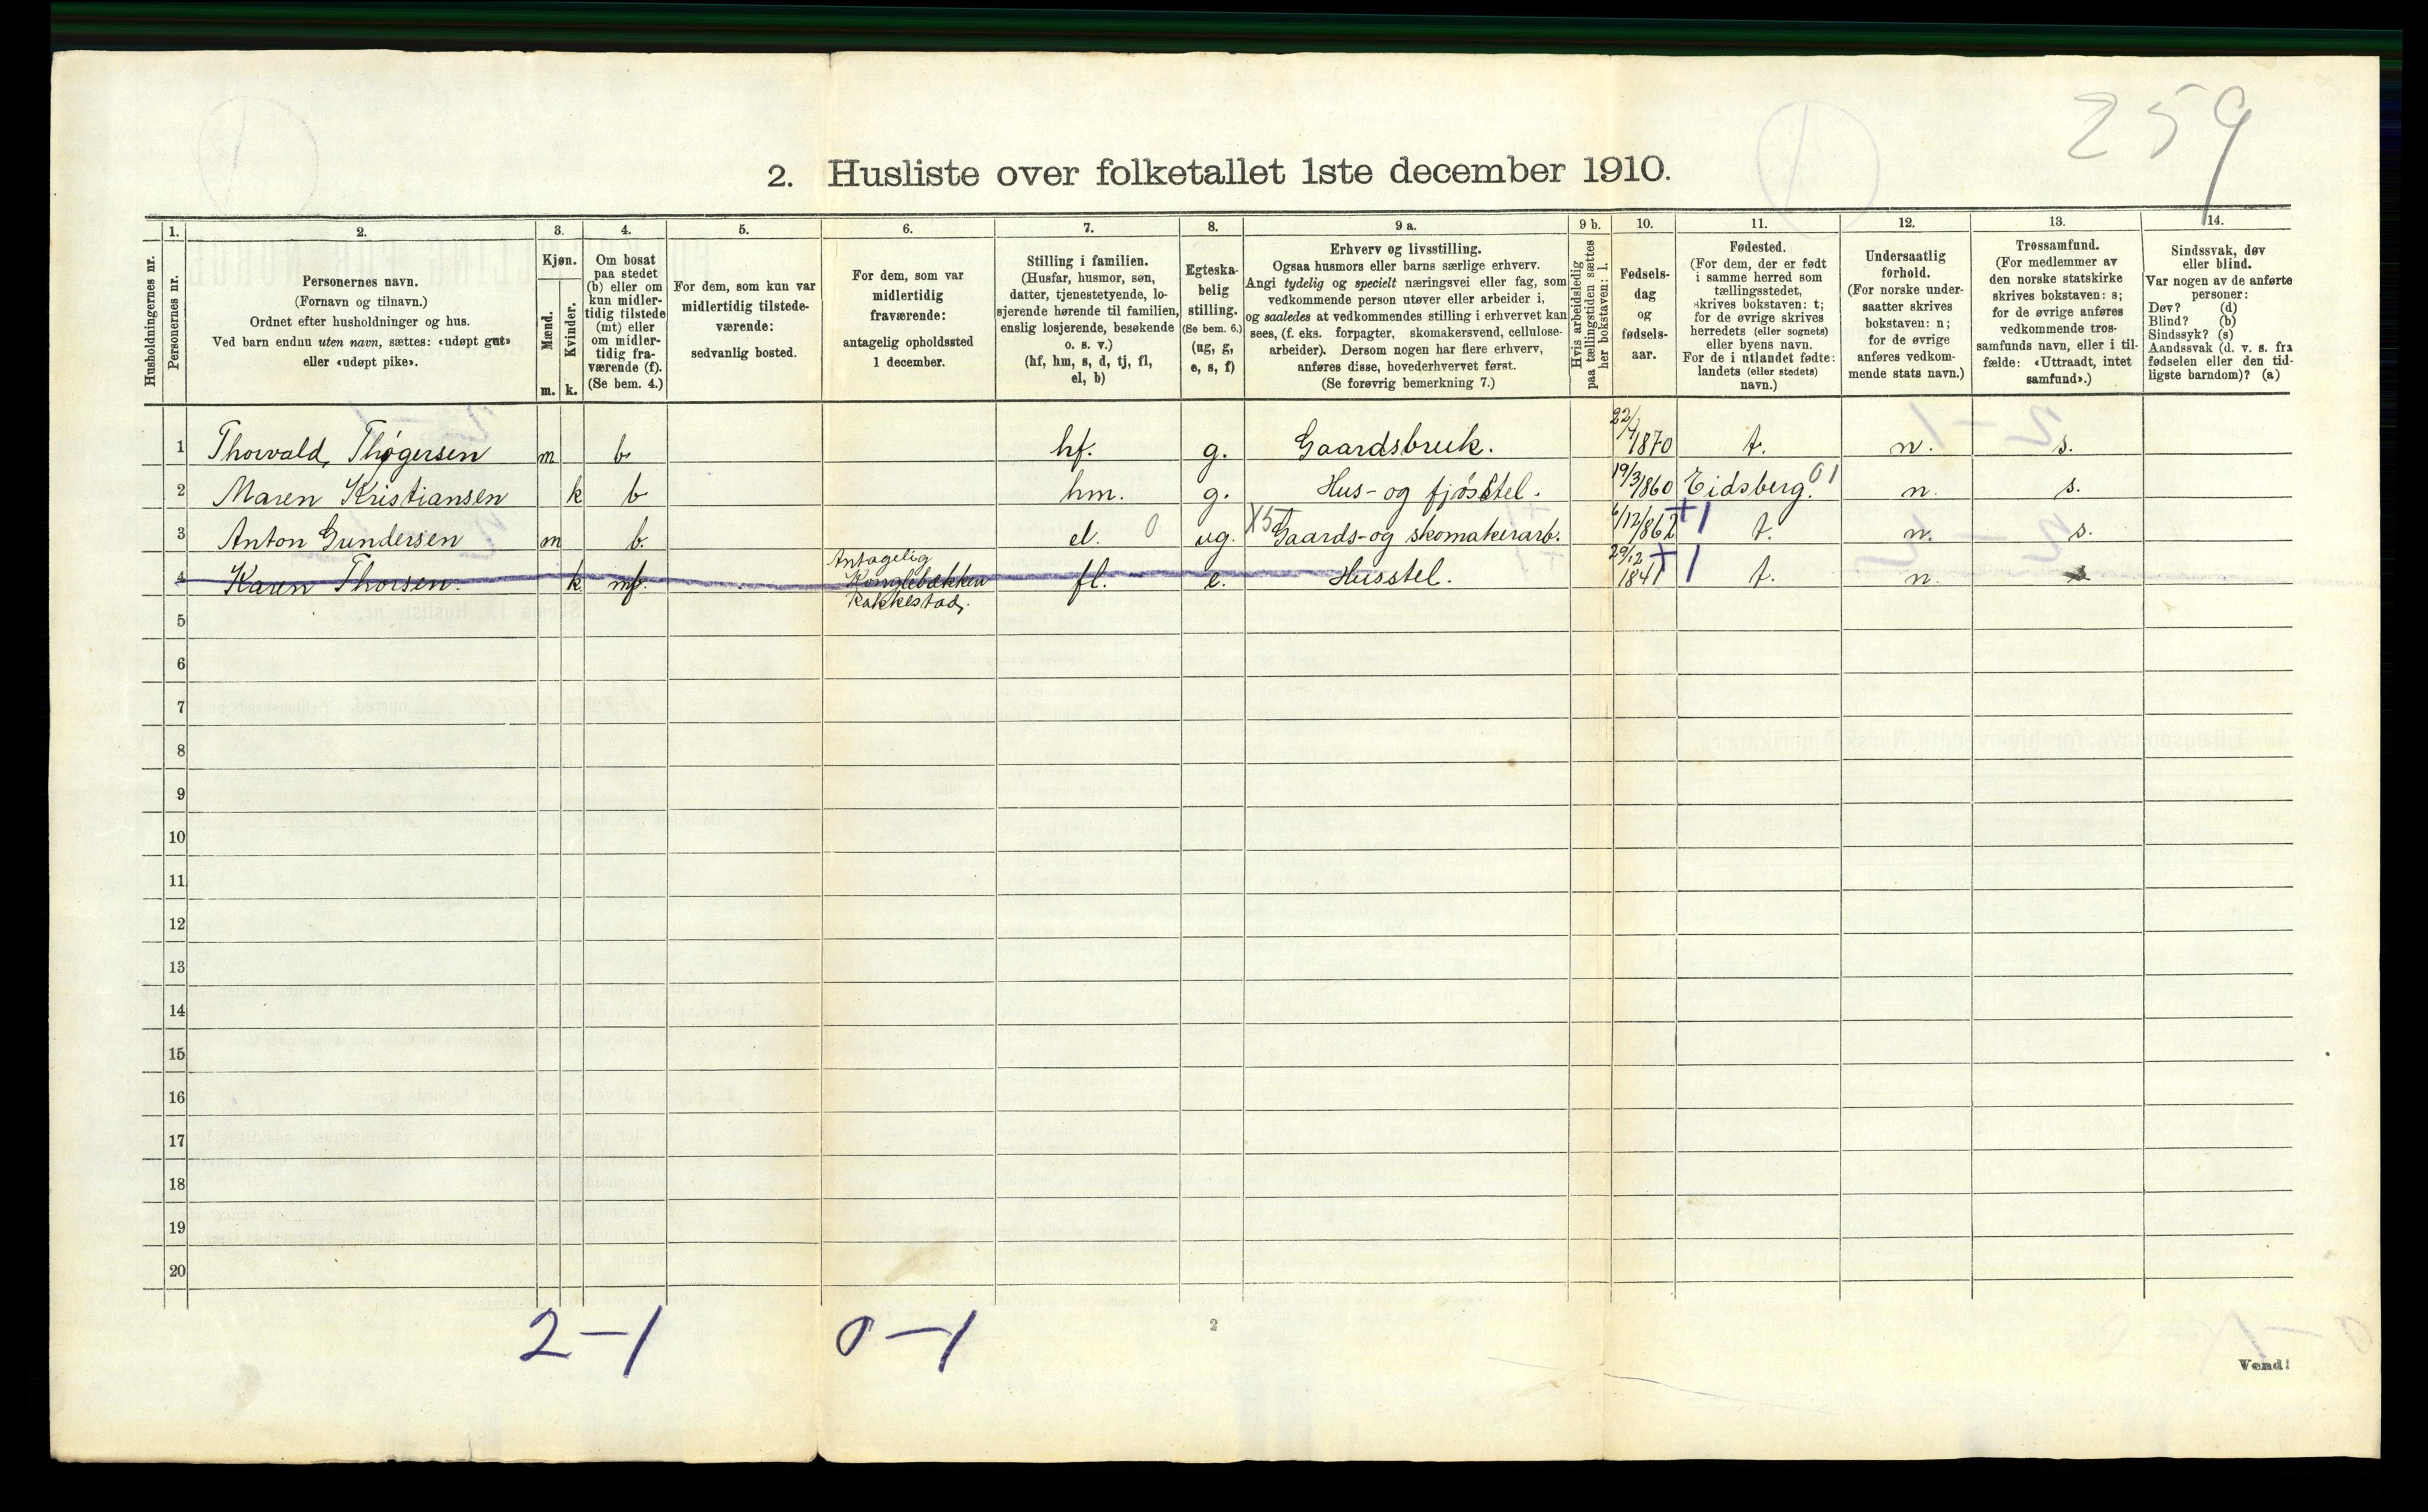 259
2. Husliste over folketallet 1ste december 1910.
Husholdningernes nr.
1.
Personernes nr.
2.
Personernes navn.
(Fornavn og tilnavn.)
Ordnet efter husholdninger og hus.
Ved barn endnu uten navn, sættes: «udøpt gut»
eller «udøpt pike».
3.
Kjøn.
Mænd.
m.
Kvinder.
k.
4.
Om bosat
paa stedet
(b) eller om
kun midler-
tidig tilstede
(mt) eller
om midler-
tidig fra-
værende (f).
(Se bem. 4.)
5.
For dem, som kun var
midlertidig tilstede-
værende:
sedvanlig bosted.
6.
For dem, som var
midlertidig
fraværende:
antagelig opholdssted
1 december.
7.
Stilling i familien.
(Husfar, husmor, søn,
datter, tjenestetyende, lo-
sjerende hørende til familien,
enslig losjerende, besøkende
o. s. v.)
(hf, hm, s, d, tj, fl,
el, b)
8.
Egteska-
belig
stilling.
(Se bem. 6.)
(ug, g,
e, s, f)
9 a.
Erhverv og livsstilling.
Ogsaa husmors eller barns særlige erhverv.
Angi tydelig og specielt næringsvei eller fag, som
vedkommende person utøver eller arbeider i,
og saaledes at vedkommendes stilling i erhvervet kan
sees, (f. eks. forpagter, skomakersvend, cellulose-
arbeider). Dersom nogen har flere erhverv,
anføres disse, hovederhvervet først.
(Se forøvrig bemerkning 7.)
9 b.
Hvis arbeidsledig
paa tællingstiden sættes
her bokstaven: l.
10.
Fødsels-
dag
og
fødsels-
aar.
11.
Fødested.
(For dem, der er født
i samme herred som
tællingsstedet,
skrives bokstaven: t;
for de øvrige skrives
herredets (eller sognets)
eller byens navn.
For de i utlandet fødte:
landets (eller stedets)
navn.)
12.
Undersaatlig
forhold.
(For norske under-
saatter skrives
bokstaven: n;
for de øvrige
anføres vedkom-
mende stats navn.)
13.
Trossamfund.
(For medlemmer av
den norske statskirke
skrives bokstaven: s;
for de øvrige anføres
vedkommende tros-
samfunds navn, eller i til-
fælde: «Uttraadt, intet
samfund».)
14.
Sindssvak, døv
eller blind.
Var nogen av de anførte
personer:
Døv? (d)
Blind? (b)
Sindssyk? (s)
Aandssvak (d. v. s. fra
fødselen eller den tid-
ligste barndom)? (a)
1 Thorvald, Thøgersen m b hf. g. Gaardsbruk. 22/4 1870 t. n. s.
2 Maren Kristiansen k b hm. g. Hus- og fjøsstel. 19/3 1860 Eidsberg. 01 n. s.
3 Anton Gundersen m b. el. 0 ug. X5 Gaards- og skomakerarb. 6/12/862 +1 t. n. s.
4 Karen Thorsen. k mf. Antagelig Konglebækken Rakkestad. fl. e. Husstel. 29/12 1841 +1 t. n. s
5
6
7
8
9
10
11
12
13
14
15
16
17
18
19
20
2-1 0-1
2
Vend!